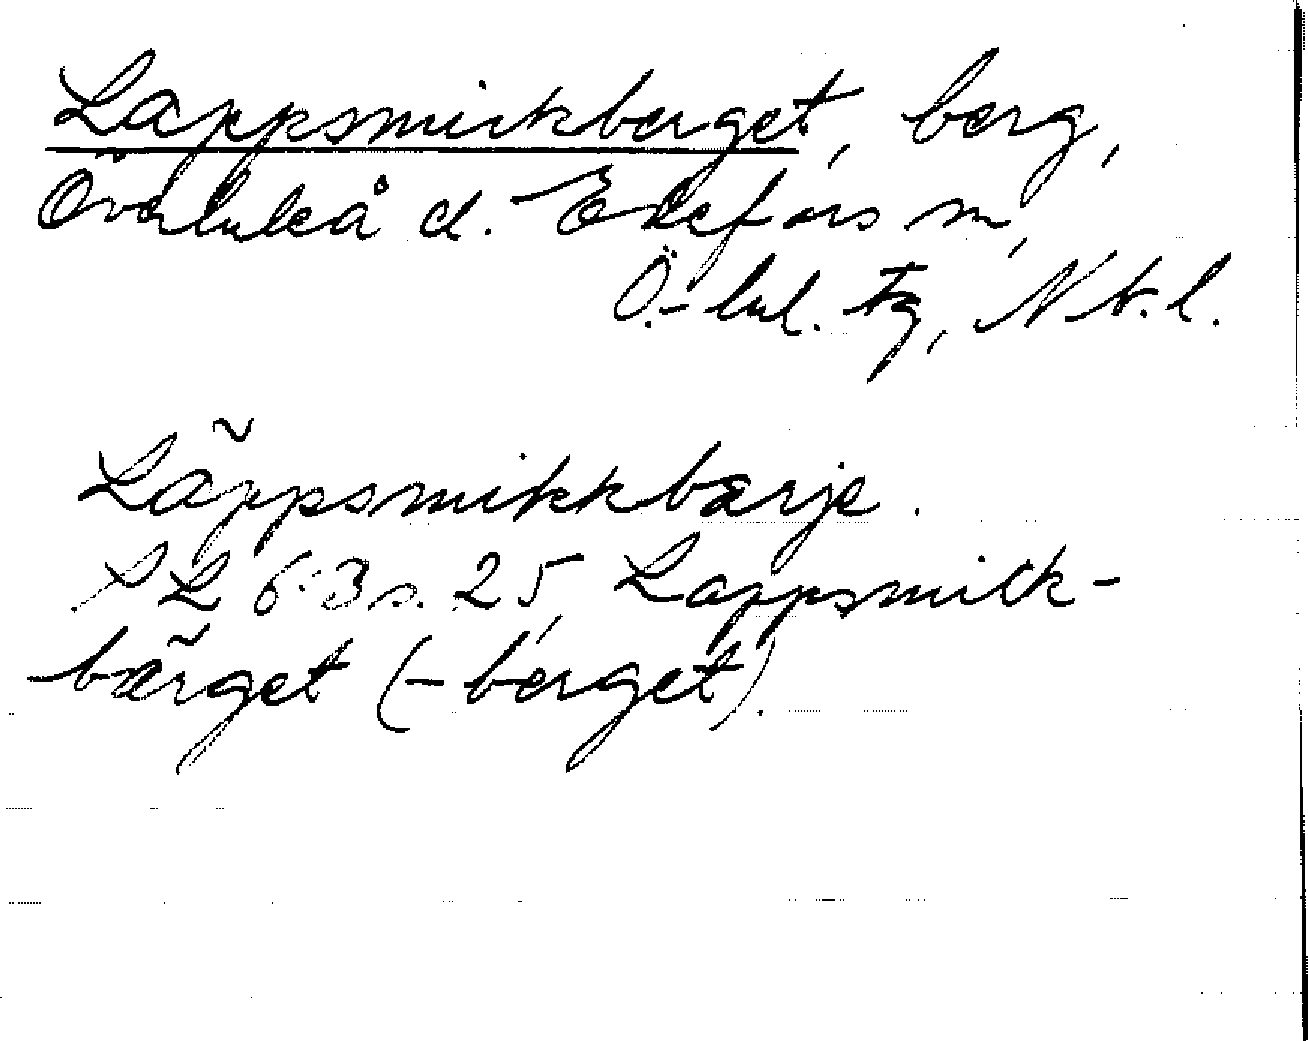 Lappsmickberget, berg,
Överluleå d. Edefors sn,
Ö.-lul. tg, Nb. l.
Lãppsmikkbærje.
SL 6:3 s. 25, Lappsmick-
bærget (-berget).